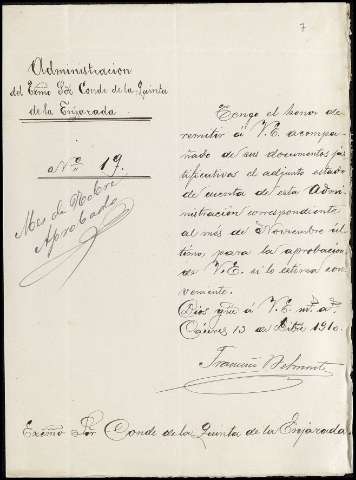 7
Administracion
del Exmo Sor Conde de la Quinta
de la Enjarada
Nº 19.
Mes de Nobre
Aprobado
Tengo el honor de
remitir á V.E. acompa
ñado de sus documentos jus
tificativos el adjunto estado
de cuenta de esta Admi
nistración correspondiente
al més de Noviembre úl
timo, para la aprobacion
de V.E. si lo estima con
veniente.
Dios gue á V.E. ms as
Cáceres 13 de Dbre 1910.
Francisco Belmonte
Excmo Sor Conde de la Quinta de la Enjarada